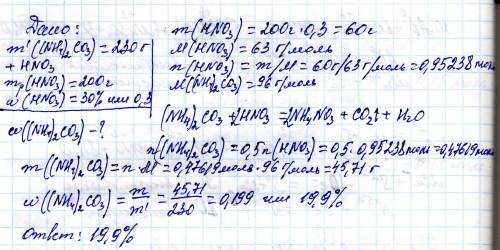 Дано:
m'((NH₄)₂CO₃) = 230 г
+ HNO₃
mр(HNO₃) = 200г
ω(HNO₃) = 30% или 0,3
ω((NH₄)₂CO₃) - ?
m(HNO₃) = 200г · 0,3 = 60г
M(HNO₃) = 63 г/моль
n(HNO₃) = m/M = 60г/63 г/моль = 0,95238 моль
M(NH₄)₂CO₃ = 96 г/моль
(NH₄)₂CO₃ + 2HNO₃ = 2NH₄NO₃ + CO₂↑ + H₂O
n((NH₄)₂CO₃) = 0,5n(HNO₃) = 0,5 · 0,95238 моль = 0,47619 моль
m((NH₄)₂CO₃) = n · M = 0,47619 моль · 96 г/моль = 45,71 г
ω((NH₄)₂CO₃) = m/m' = 45,71/230 = 0,199 или 19,9%
Ответ: 19,9%